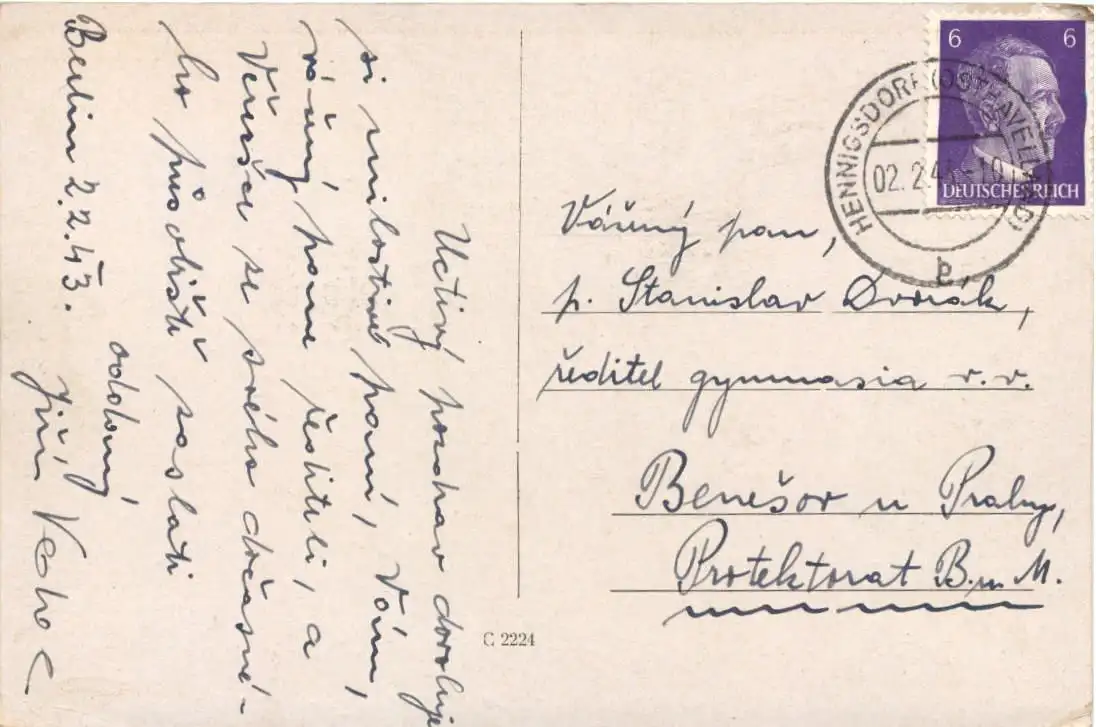 Uctivý pozdrav dovoluje
si milostivé paní, Vám,
vážený pane řediteli, a
Věrušce se svého dočasné-
ho působiště zaslati
oddaný
Jiří
Berlin 2.2.43.
6 6
DEUTSCHES REICH
HENNIGSDORF (OSTHAVELLAND)
02.2.4
Vážený pan,
p. Stanislav Dvořák,
ředitel gymnasia v.v.
Benešov u Prahy,
Protektorat B. u M.
C 2224